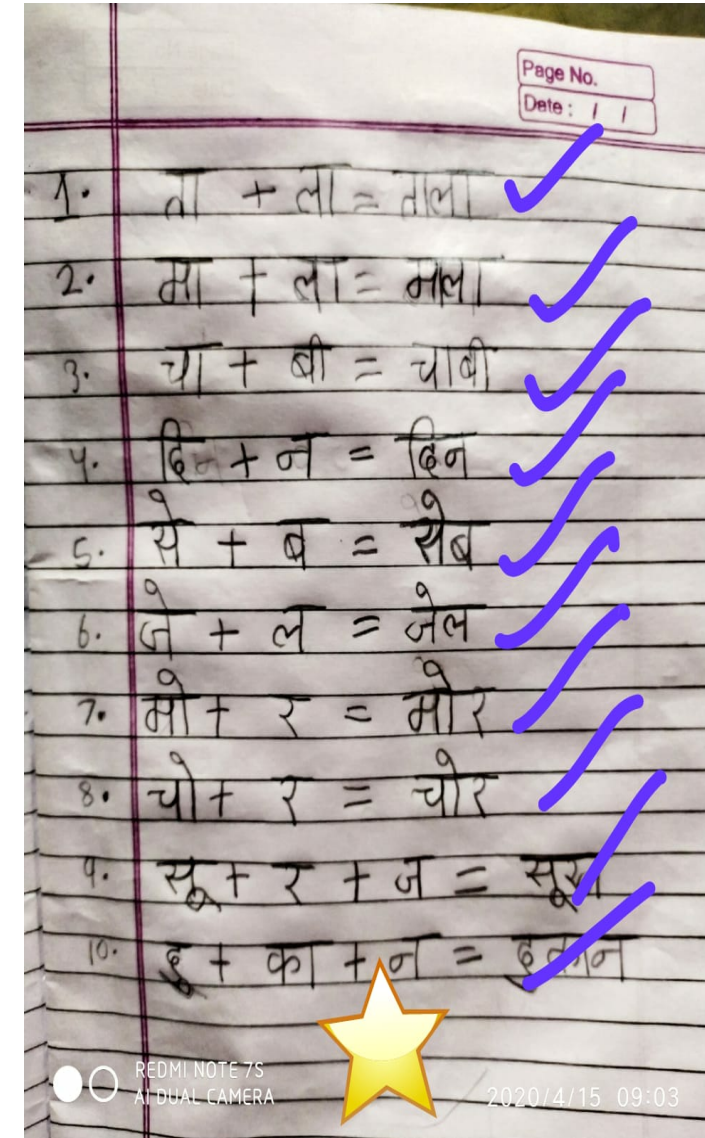 Page No.
Date : / /
1. ता + ला = ताला
2. मा + ला = माला
3. चा + बी = चाबी
4. दि + न = दिन
5. से + ब = सेब
6. जे + ल = जेल
7. मो + र = मोर
8. चो + र = चोर
9. सू + र + ज = सूरज
10. दु + का + न = दुकान
REDMI NOTE 7S
AI DUAL CAMERA
2020/4/15 09:03